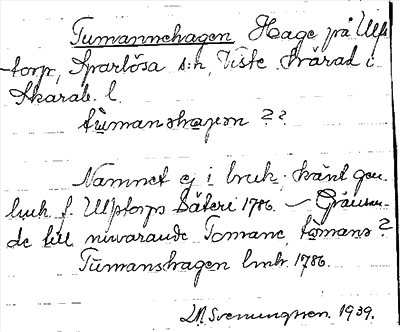 Tumannehagen Hage på Ulp
-torp, Sparlösa s:n, Viste härad i
Skarab. l.
tùmanshagen ??
Namnet ej i bruk, känt gen.
lmh f. Ulptorps Säteri 1786. – Gränsan-
de till nuvarande Tomane, tòmans?
Tumanshagen lmh. 1786.
Svenungsson. 1939.